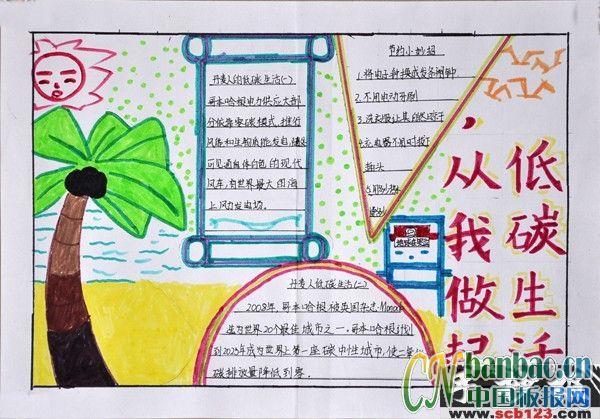 低碳生活,
从我做起
丹麦人的低碳生活(一)
哥本哈根电力供应大部
分依靠零碳模式,推行
风能和生物质能发电,随处
可见通体白色的现代
风车,有世界最大的海
上风力发电场。
节约小妙招
1.将电子钟换成发条闹钟
2.不用电动牙刷
3.洗衣服让其自然晾干
4.充电器不用时拔下
插头
丹麦人低碳生活(二)
2008年,哥本哈根被英国杂志
选为世界20个最佳城市之一,哥本哈根计划
到2025年成为世界上第一座碳中性城市,使二氧化
碳排放量降低到零。
CNbanbao.cn
中国板报网
www.scb123.com